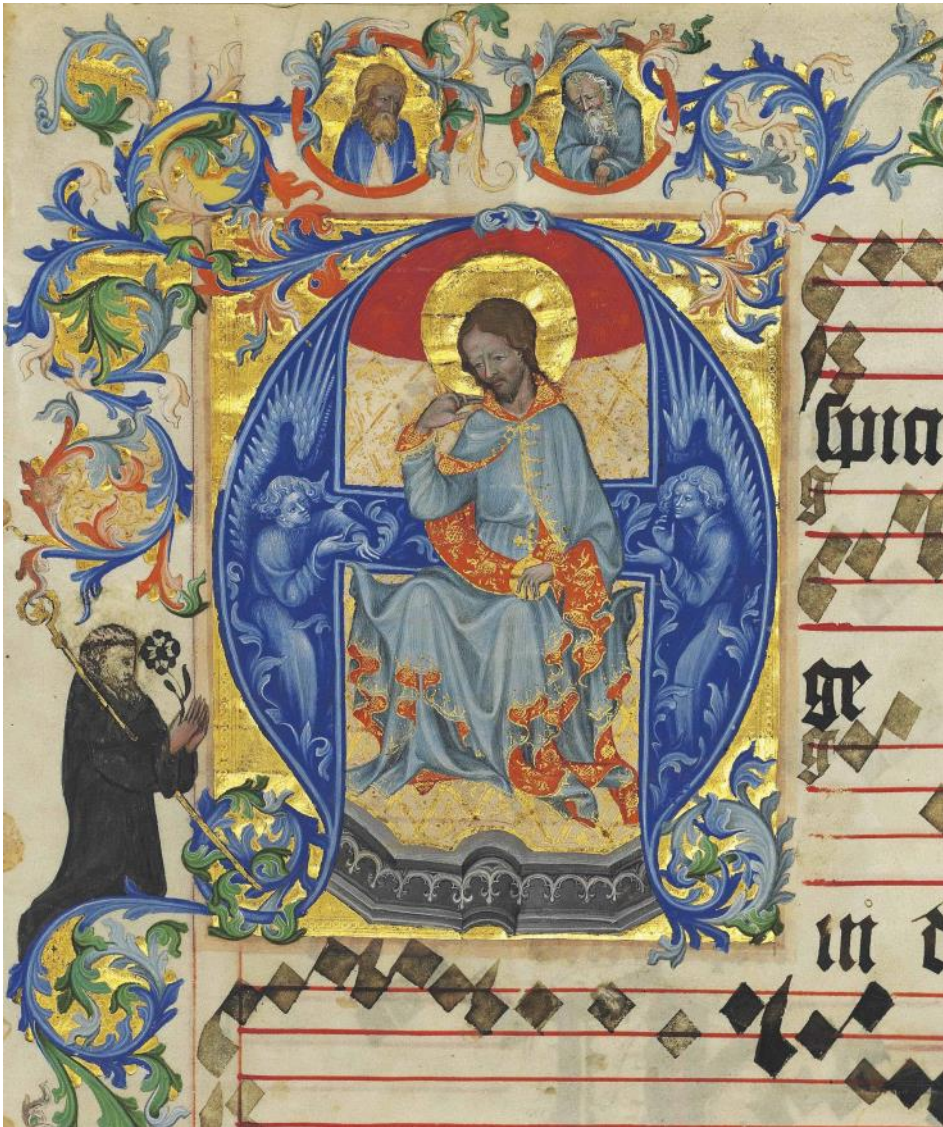 Aspici
ge
in